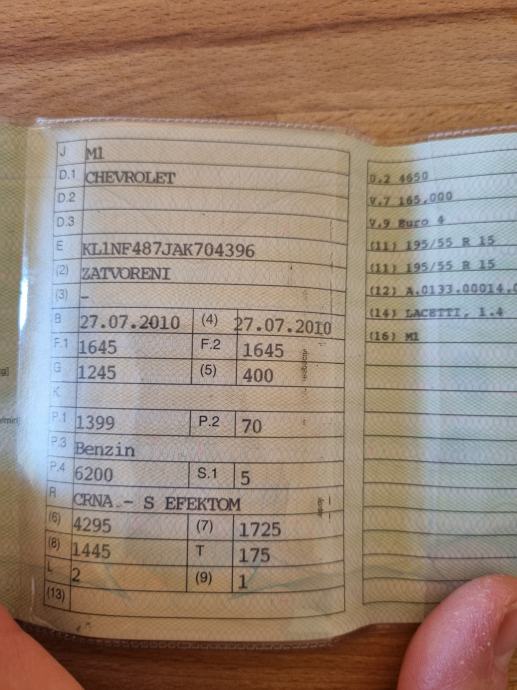 J M1
D.1 CHEVROLET
D.2
D.3
E KL1NF487JAK704396
(2) ZATVORENI
(3) -
B 27.07.2010 (4) 27.07.2010
F.1 1645 F.2 1645
G 1245 (5) 400
K
P.1 1399 P.2 70
P.3 Benzin
P.4 6200 S.1 5
R CRNA - S EFEKTOM
(6) 4295 (7) 1725
(8) 1445 T 175
L 2 (9) 1
(13)
D.2 4650
V.7 165,000
V.9 Euro 4
(11) 195/55 R 15
(11) 195/55 R 15
(12) A.0133.00014.0
(14) LACETTI, 1.4
(16) M1